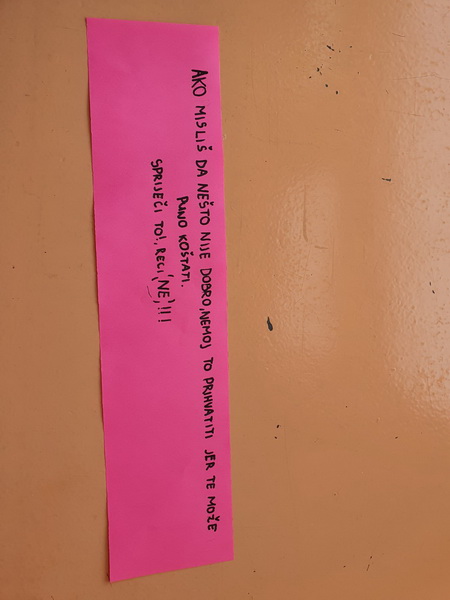 AKO MISLIŠ DA NEŠTO NIJE DOBRO, NEMOJ TO PRIHVATITI JER TE MOŽE
PUNO KOŠTATI.
SPRIJEČI TO!, RECI (NE)!!!